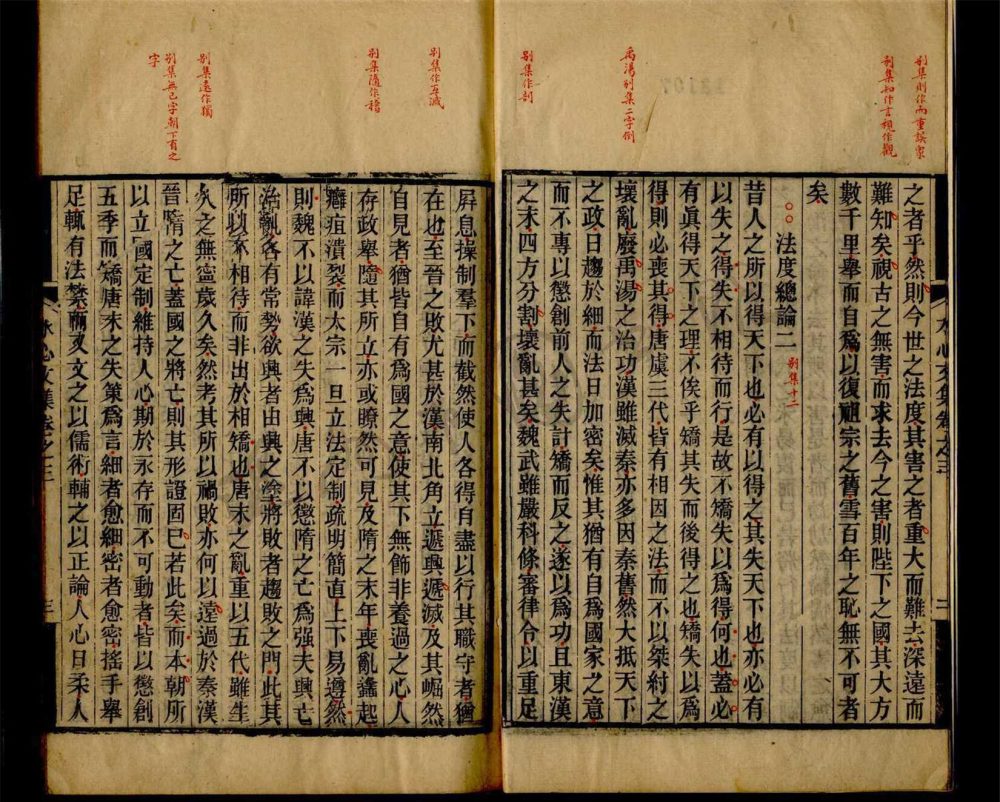 別集則作而重誤窠
別集知作言視作觀
禹湯別集二字倒
別集作制
之者乎然則今世之法度其害之者重大而難去深遠而
難知矣視古之無害而求去今之害則陛下之國其大方
數千里舉而自為以復祖宗之舊雪百年之恥無不可者
矣
法度總論二 別集十二
昔人之所以得天下也必有以得之其失天下也亦必有
以失之得失不相待而行是故不矯失以為得何也蓋必
有真得天下之理不俟乎矯其失而後得之也矯失以為
得則必喪其得唐虞三代皆有相因之法而不以桀紂之
壞亂廢禹湯之治功漢雖滅秦亦多因秦舊然大抵天下
之政日趨於細而法日加密矣惟其猶有自為國家之意
而不專以懲創前人之失計矯而反之遂以為功且東漢
之末四方分割壞亂甚矣魏武雖嚴科條審律令以重足
水心文集卷之三
二
別集作互滅
別集隨作稽
別集遠作獨
別集無已字朝下有之
字
屏息操制羣下而截然使人各得自盡以行其職守者猶
在也至晉之敗尤甚於漢南北角立遞興遞滅及其崛然
自見者猶皆自有為國之意使其下無飾非養過之心人
存政舉隨其所立亦或瞭然可見及隋之末年喪亂蠭起
癰疽潰裂而太宗一旦立法定制疏明簡直上下易遵然
則魏不以諱漢之失為興唐不以懲隋之亡為强夫興亡
治亂各有常勢欲興者由興之塗將敗者趨敗之門此其
所以不相待而非出於相矯也唐末之亂重以五代雖生
人之無寧歲久矣然考其所以禍敗亦何以遠過於秦漢
晉隋之亡蓋國之將亡則其形證固已若此矣而本朝所
以立國定制維持人心期於永存而不可動者皆以懲創
五季而矯唐末之失策為言細者愈細密者愈密搖手舉
足輒有法禁而又文之以儒術輔之以正論人心日柔人
水心文集卷之三
三